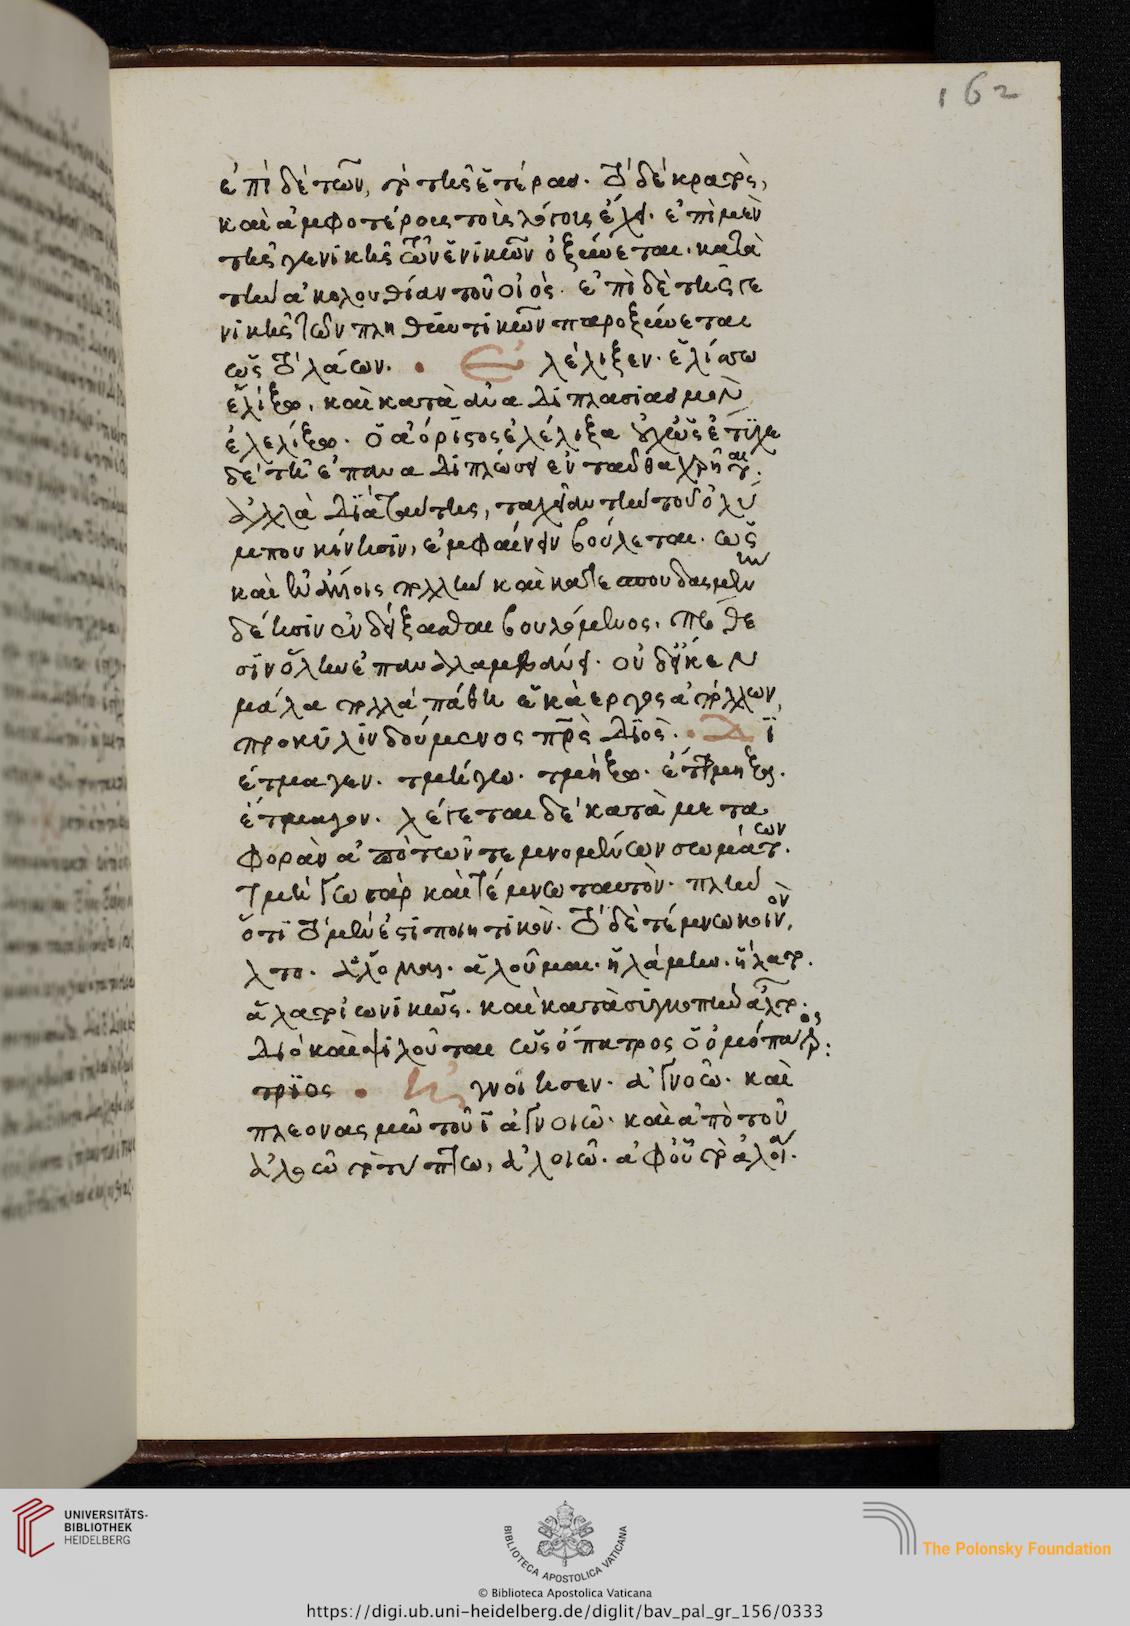 162
ἐπὶ δὲ τῶν, τῆς ἑτέρας. ὁ δὲ κρατρὸς,
καὶ ἀμφοτέροις τοῖς λόγοις ἐπὶ μὲν
τῆς γενικῆς τῶν ἑνικῶν ὀξύνεται. κατὰ
τὴν ἀκολουθίαν τοῦ οἰὸς. ἐπὶ δὲ τῆς γε
νικῆς τῶν πληθυντικῶν παροξύνεται
ὡς ὁ λάων. Ἐλέλιξεν. ἑλίσσω
ἑλίξω. καὶ κατὰ ἀναδιπλασιασμὸν
ἐλελίξω. ὁ ἀόριστος ἐλέλιξα
δὲ τῇ ἐπαναδιπλώσει ἐνταῦθα χρῆται.
ἀλλὰ διὰ ταύτης, τὴν τοῦ ὀλύ
μπου κίνησιν, ἐμφαίνειν βούλεται. ὡς
καὶ ἐν ἄλλοις πολλὴν καὶ κατεσπουδασμένην
δέησιν ἐνδείξασθαι βουλόμενος,
μάλα πολλὰ πάθη ἑκάεργος ἀπόλλων,
προκυλινδούμενος πρὸς Διός. Δι
έτμαγεν. τμήγω. τμήξω.
ἔτμαγον. λέγεται δὲ κατὰ μετα
φορὰν ἀπὸ τῶν τεμνομένων σωμάτων.
τμήγω γὰρ καὶ τέμνω ταυτὸν. πλὴν
ὅτι ὁ μὲν ἐστι ποιητικὸν. ὁ δὲ τέμνω κοινὸν,
ἆλτο. ἅλομαι. ἁλοῦμαι. ἡλάμην. ἥλατο.
ἅλατο ἰωνικῶς. καὶ κατὰ συγκοπὴν ἆλτο.
διὸ καὶ ψιλοῦται ὡς ὄπατρος ὁ ὁμόπατρος:
τρῖος Ἠγνοίησεν. ἀγνοῶ. καὶ
πλεονασμῷ τοῦ ϊ ἀγνοιῶ. καὶ ἀπὸ τοῦ
ἀλοῶ τὸ τύπτω, ἀλοιῶ. ἀφ' οὗ
UNIVERSITÄTS-
BIBLIOTHEK
HEIDELBERG
BIBLIOTECA APOSTOLICA VATICANA
The Polonsky Foundation
© Biblioteca Apostolica Vaticana
https://digi.ub.uni-heidelberg.de/diglit/bav_pal_gr_156/0333